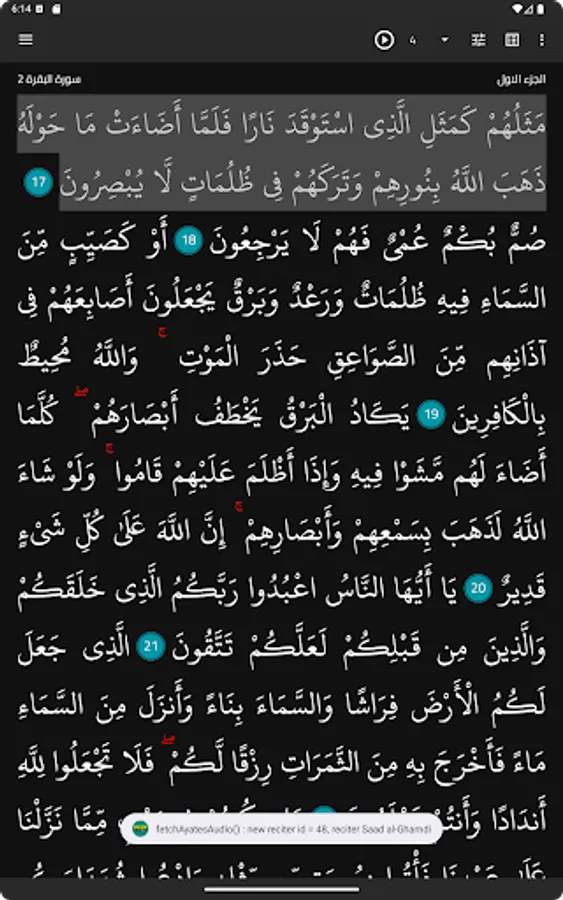 6:14
4
الجزء الاول
سورة البقرة 2
مَثَلُهُمْ كَمَثَلِ الَّذِى اسْتَوْقَدَ نَارًا فَلَمَّا أَضَاءَتْ مَا حَوْلَهُ
ذَهَبَ اللَّهُ بِنُورِهِمْ وَتَرَكَهُمْ فِى ظُلُمَاتٍ لَّا يُبْصِرُونَ 17
صُمٌّ بُكْمٌ عُمْىٌ فَهُمْ لَا يَرْجِعُونَ 18 أَوْ كَصَيِّبٍ مِّنَ
السَّمَاءِ فِيهِ ظُلُمَاتٌ وَرَعْدٌ وَبَرْقٌ يَجْعَلُونَ أَصَابِعَهُمْ فِى
آذَانِهِم مِّنَ الصَّوَاعِقِ حَذَرَ الْمَوْتِ ۚ وَاللَّهُ مُحِيطٌ
بِالْكَافِرِينَ 19 يَكَادُ الْبَرْقُ يَخْطَفُ أَبْصَارَهُمْ ۖ كُلَّمَا
أَضَاءَ لَهُم مَّشَوْا فِيهِ وَإِذَا أَظْلَمَ عَلَيْهِمْ قَامُوا ۚ وَلَوْ شَاءَ
اللَّهُ لَذَهَبَ بِسَمْعِهِمْ وَأَبْصَارِهِمْ ۚ إِنَّ اللَّهَ عَلَىٰ كُلِّ شَىْءٍ
قَدِيرٌ 20 يَا أَيُّهَا النَّاسُ اعْبُدُوا رَبَّكُمُ الَّذِى خَلَقَكُمْ
وَالَّذِينَ مِن قَبْلِكُمْ لَعَلَّكُمْ تَتَّقُونَ 21 الَّذِى جَعَلَ
لَكُمُ الْأَرْضَ فِرَاشًا وَالسَّمَاءَ بِنَاءً وَأَنزَلَ مِنَ السَّمَاءِ
مَاءً فَأَخْرَجَ بِهِ مِنَ الثَّمَرَاتِ رِزْقًا لَّكُمْ ۖ فَلَا تَجْعَلُوا لِلَّهِ
أَندَادًا وَأَنتُمْ مِّمَّا نَزَّلْنَا
fetchAyatesAudio() : new reciter id = 48, reciter Saad al-Ghamdi